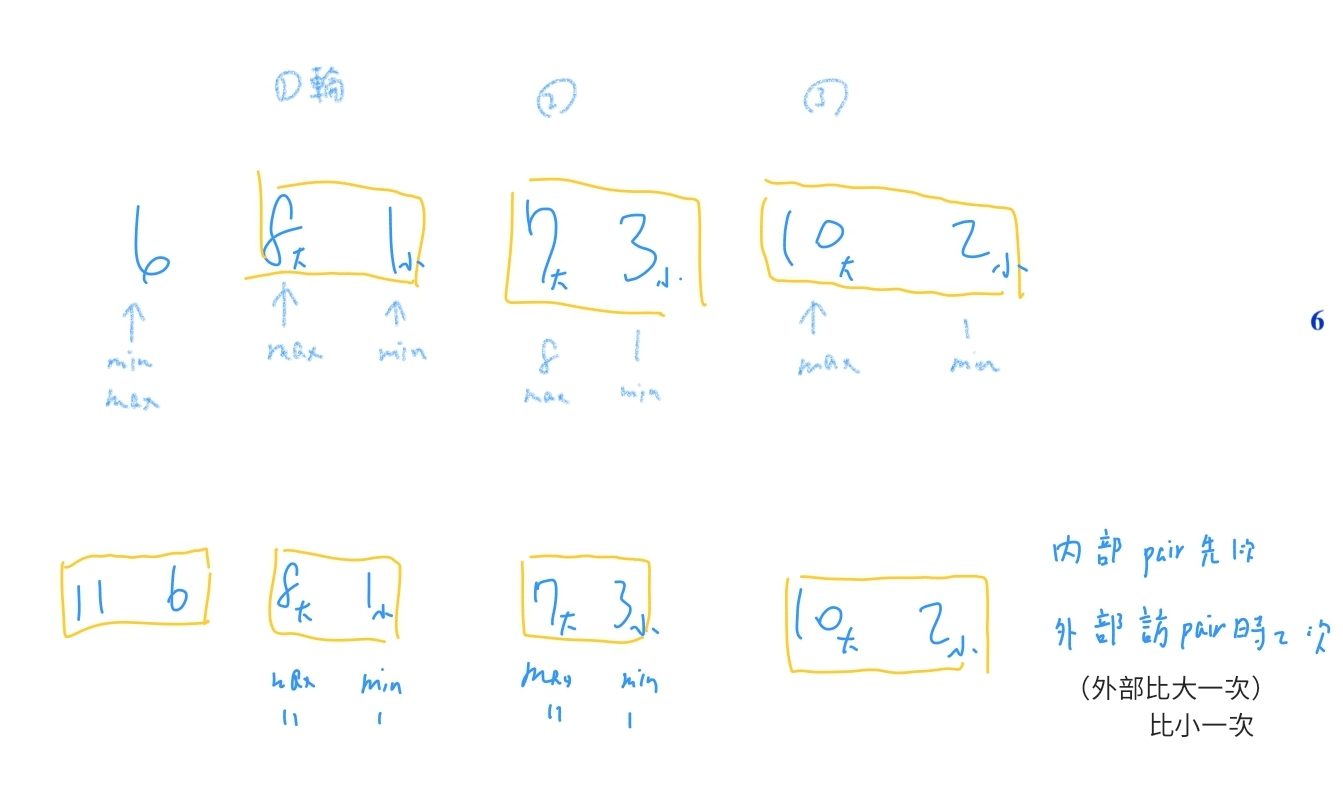 ①輪 ② ③
6 8大 1小 7大 3小 10大 2小
min max min 8 1 max 1
max max min min
6
11 6 8大 1小 7大 3小 10大 2小
max min max min
11 1 11 1
內部 pair 先1次
外部訪pair時2次
(外部比大一次)
比小一次